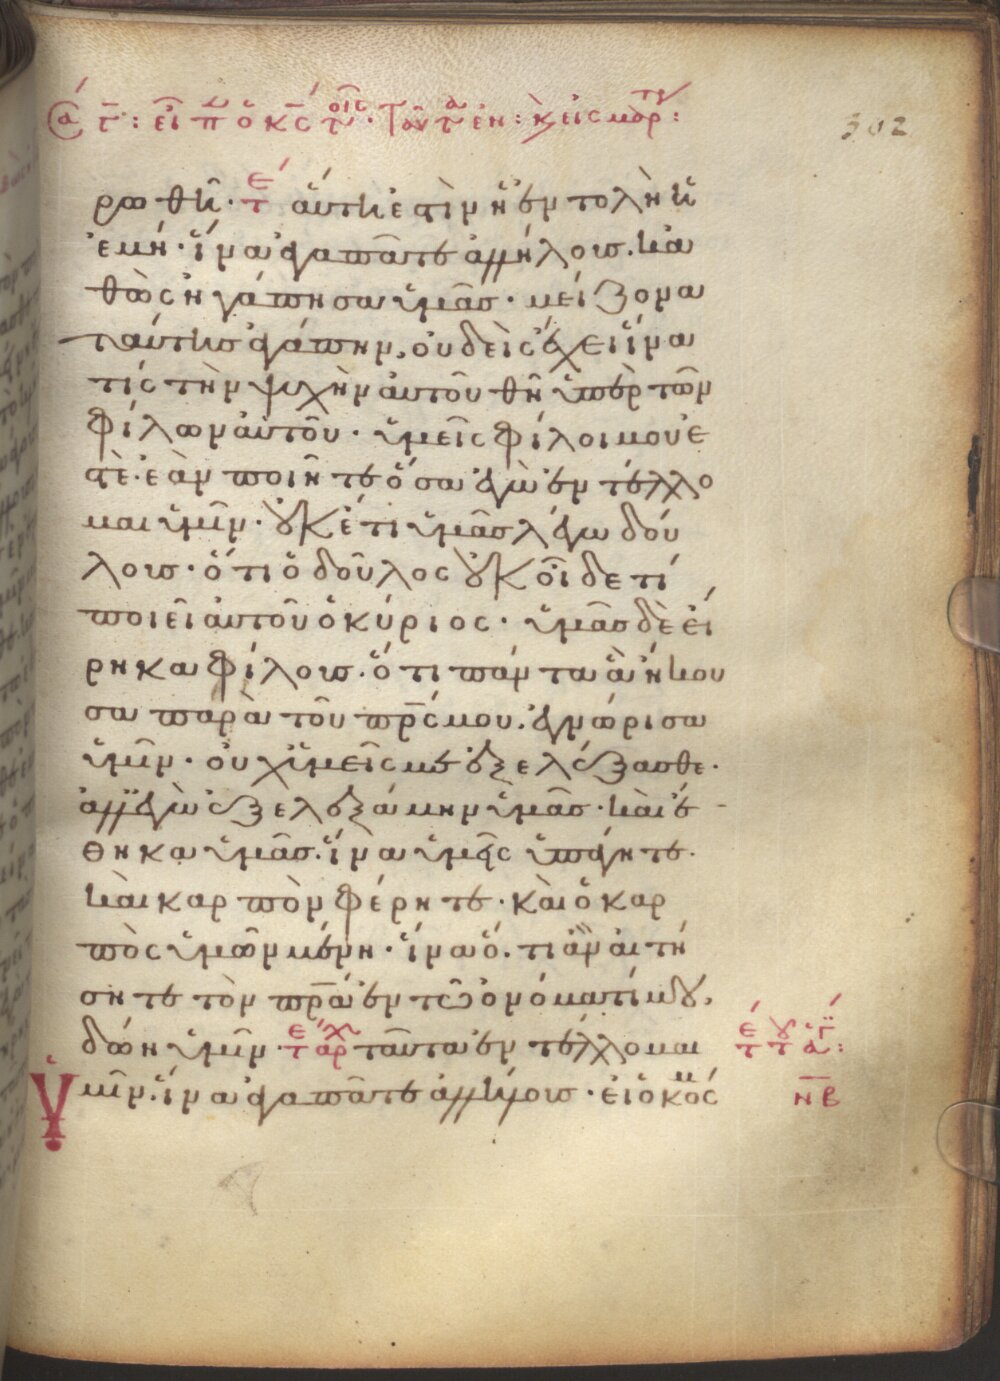 302
ρωθῆ· τέ αὕτη ἐστὶν ἡ ἐντολὴ ἡ
ἐμή· ἵνα ἀγαπᾶτε ἀλλήλους· κα
θὼς ἠγάπησα ὑμᾶς· μείζονα
ταύτης ἀγάπην, οὐδεὶς ἔχει ἵνα
τίς τὴν ψυχὴν αὐτοῦ θῆ ὑπὲρ τῶν
φίλων αὐτοῦ· ὑμεῖς φίλοι μου ἐ
στὲ· ἐὰν ποιῆτε ὅσα ἐγὼ ἐντέλλο
μαι ὑμῖν· οὐκέτι ὑμᾶς λέγω δού
λους· ὅτι ὁ δοῦλος οὐκ οἶδε τί
ποιεῖ αὐτοῦ ὁ κύριος· ὑμᾶς δὲ εἴ
ρηκα φίλους· ὅτι πάντα ἃ ἤκου
σα παρὰ τοῦ πρς μου· ἐγνώρισα
ὑμῖν· οὐχ ὑμεῖς με ἐξελέξασθε·
ἀλλ' ἐγὼ ἐξελεξάμην ὑμᾶς· καὶ ἔ
θηκα ὑμᾶς· ἵνα ὑμεῖς ὑπάγητε·
καὶ καρπὸν φέρητε· καὶ ὁ καρ
πὸς ὑμῶν μένη· ἵνα ὅ,τι ἂν αἰτή
σητε τὸν πρα ἐν τῶ ὀνόματί μου,
δώη ὑμῖν· ταῦτα ἐντέλλομαι
ὑμῖν· ἵνα ἀγαπᾶτε ἀλλήλους· εἰ ὁ κόσμος
νβ